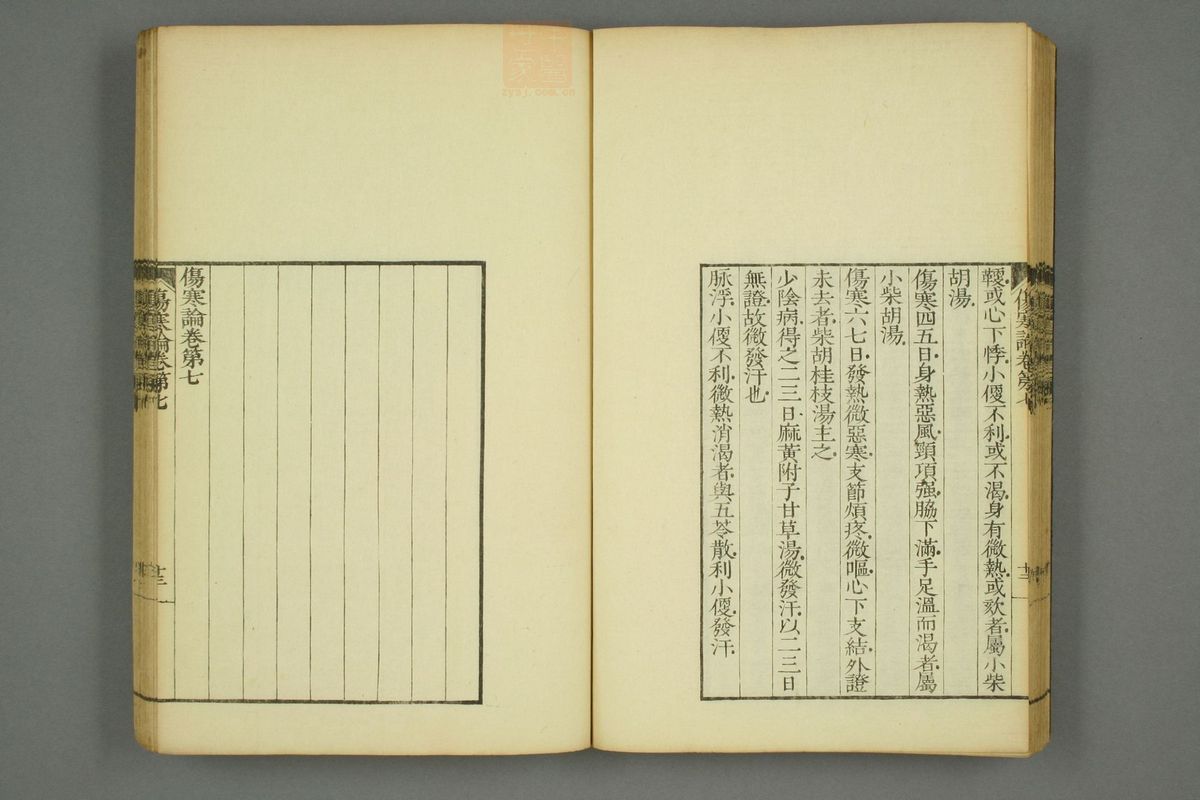 鞕或心下悸小便不利或不渴身有微熱或欬者屬小柴
胡湯
傷寒四五日身熱惡風頸項强脇下滿手足溫而渴者屬
小柴胡湯
傷寒六七日發熱微惡寒支節煩疼微嘔心下支結外證
未去者柴胡桂枝湯主之
少陰病得之二三日麻黃附子甘草湯微發汗以二三日
無證故微發汗也
脉浮小便不利微熱消渴者與五苓散利小便發汗
傷寒論卷第七
十二
傷寒論卷第七
傷寒論卷第七
十三
zysj.com.cn